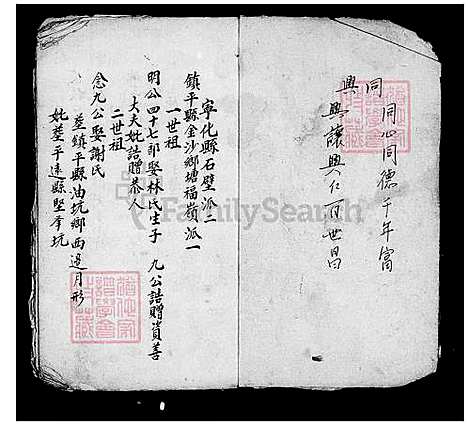 同 同心同德千年富
興 興讓興仁百世昌
寧化縣石壁派二
鎮平縣金沙鄉塘福嶺派一
一世祖
明公四十七郎娶林氏生子 九公誥贈資善
大夫妣誥贈恭人
二世祖
念九公娶謝氏
葬鎮平縣油坑鄉西邊月形
妣葬平遠縣坚李坑
FamilySearch